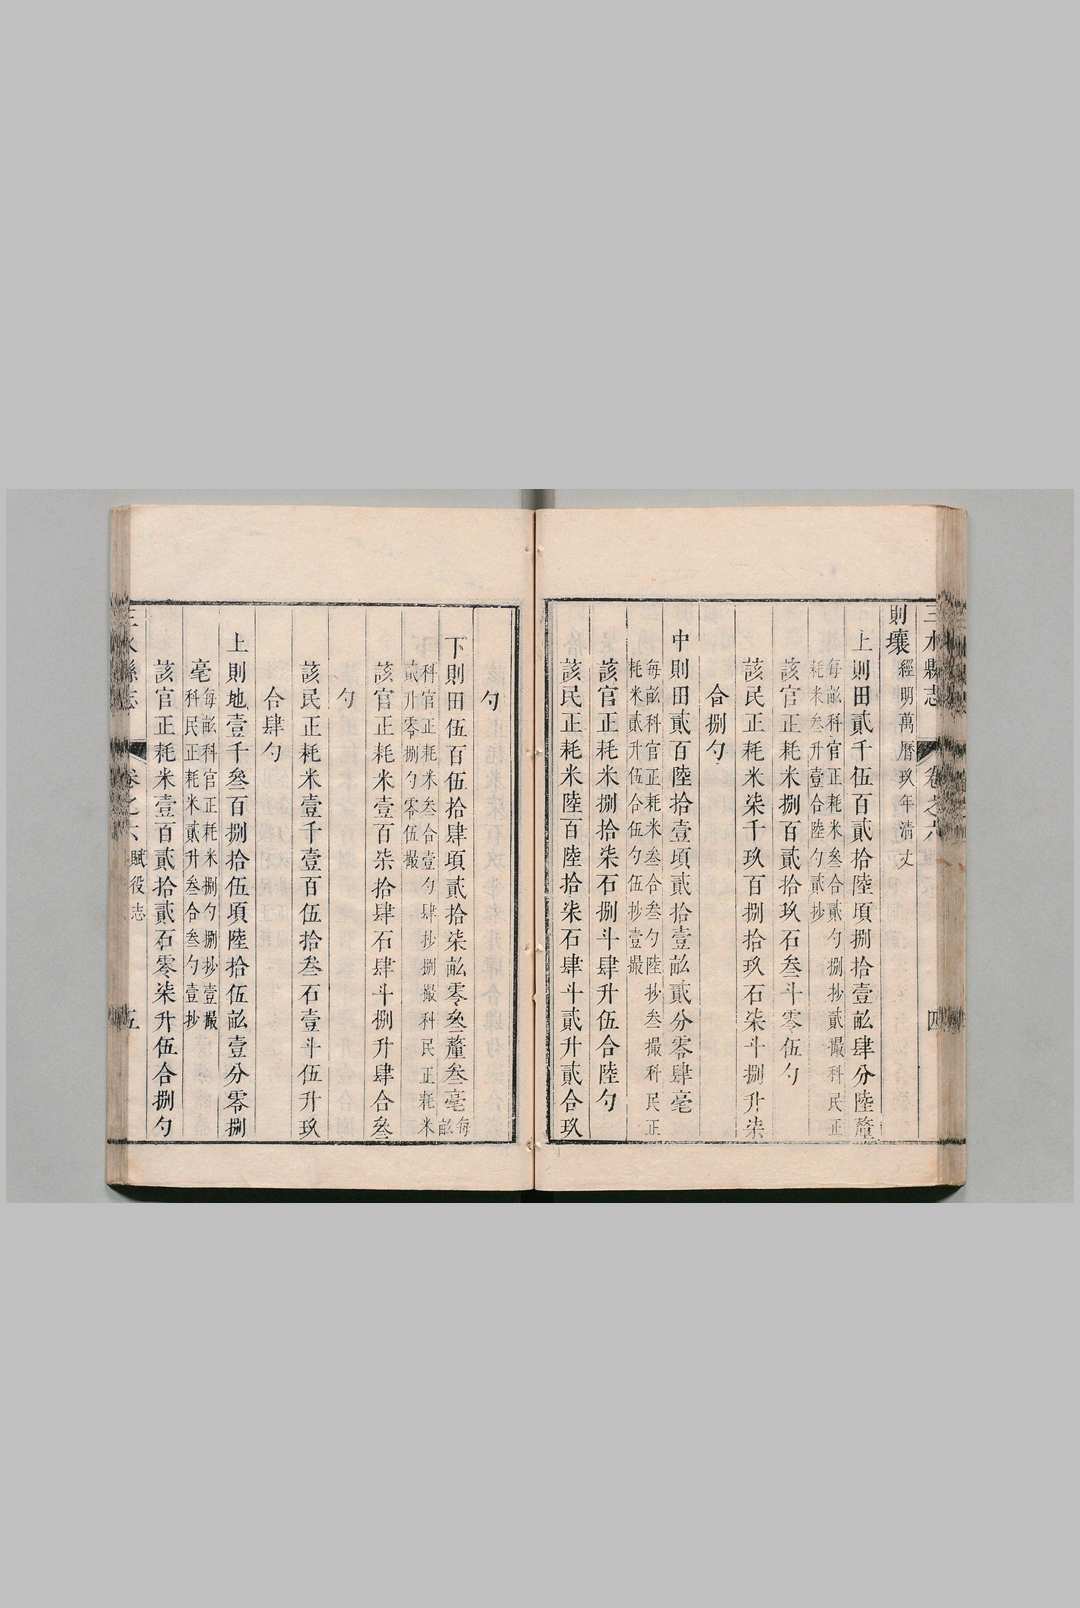 三水縣志 卷之六 四
則壤 經明萬曆玖年清丈
上則田貳千伍百貳拾陸項捌拾壹畝肆分陸釐
每畝科官正耗米叁合貳勺捌抄貳撮科民正
耗米叁升壹合陸勺貳抄
該官正耗米捌百貳拾玖石叁斗零伍勺
該民正耗米柒千玖百捌拾玖石柒斗捌升柒
合捌勺
中則田貳百陸拾壹項貳拾壹畝貳分零肆毫
每畝科官正耗米叁合叁勺陸抄叁撮科民正
耗米貳升伍合伍勺伍抄壹撮
該官正耗米捌拾柒石捌斗肆升伍合陸勺
該民正耗米陸百陸拾柒石肆斗貳升貳合玖
勺
下則田伍百伍拾肆項貳拾柒畝零叁釐叁毫 每畝
科官正耗米叁合壹勺肆抄捌撮科民正耗米
貳升零捌勺零伍撮
該官正耗米壹百柒拾肆石肆斗捌升肆合叁
勺
該民正耗米壹千壹百伍拾叁石壹斗伍升玖
合肆勺
上則地壹千叁百捌拾伍項陸拾伍畝壹分零捌
毫 每畝科官正耗米捌勺捌抄壹撮
科民正耗米貳升叁合叁勺壹抄
該官正耗米壹百貳拾貳石零柒升伍合捌勺
三水縣志 卷之六 賦役志 五